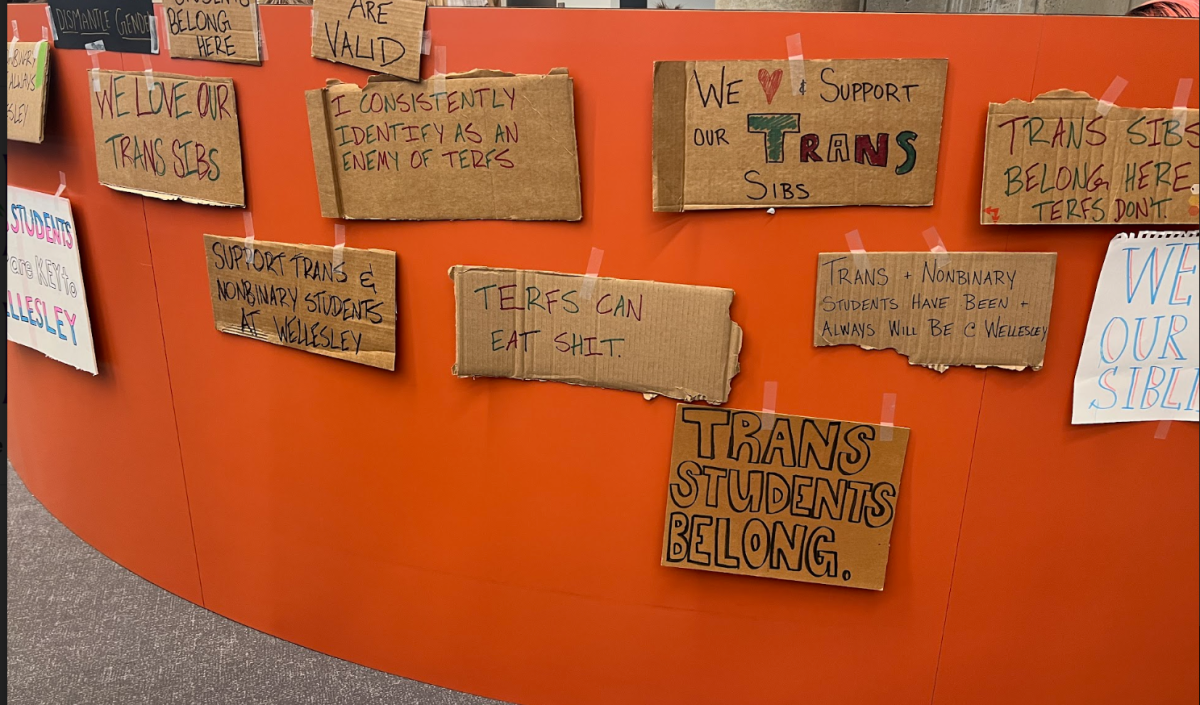 DISMANTLE GENDER
STUDENTS
BELONG
HERE
ARE
VALID
ALWAYS
WE LOVE OUR
TRANS SIBS
I CONSISTENTLY
IDENTIFY AS AN
ENEMY OF TERFS
WE ♥ & SUPPORT
OUR TRANS
SIBS
TRANS SIBS
BELONG HERE
TERFS DON'T.
STUDENTS
are KEY to
ELLESLEY
SUPPORT TRANS &
NONBINARY STUDENTS
AT WELLESLEY
TERFS CAN
EAT SHIT.
TRANS + NONBINARY
STUDENTS HAVE BEEN +
ALWAYS WILL BE C WELLESLEY
WE
OUR
SIBLI
TRANS
STUDENTS
BELONG.